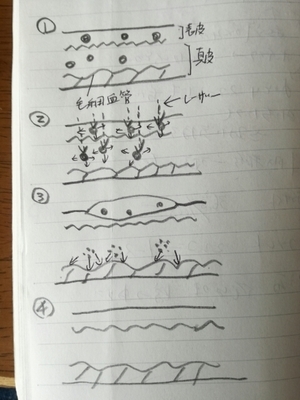 ①
表皮
真皮
毛細血管
②
レーザー
③
④